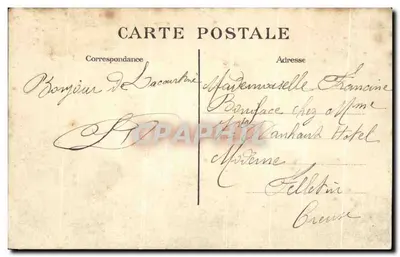 CARTE POSTALE
Correspondance
Adresse
Bonjour de Lacourtine
Mademoiselle Francine
Boniface chez Mme
Hotel
Moderne
Felletin
Creuse